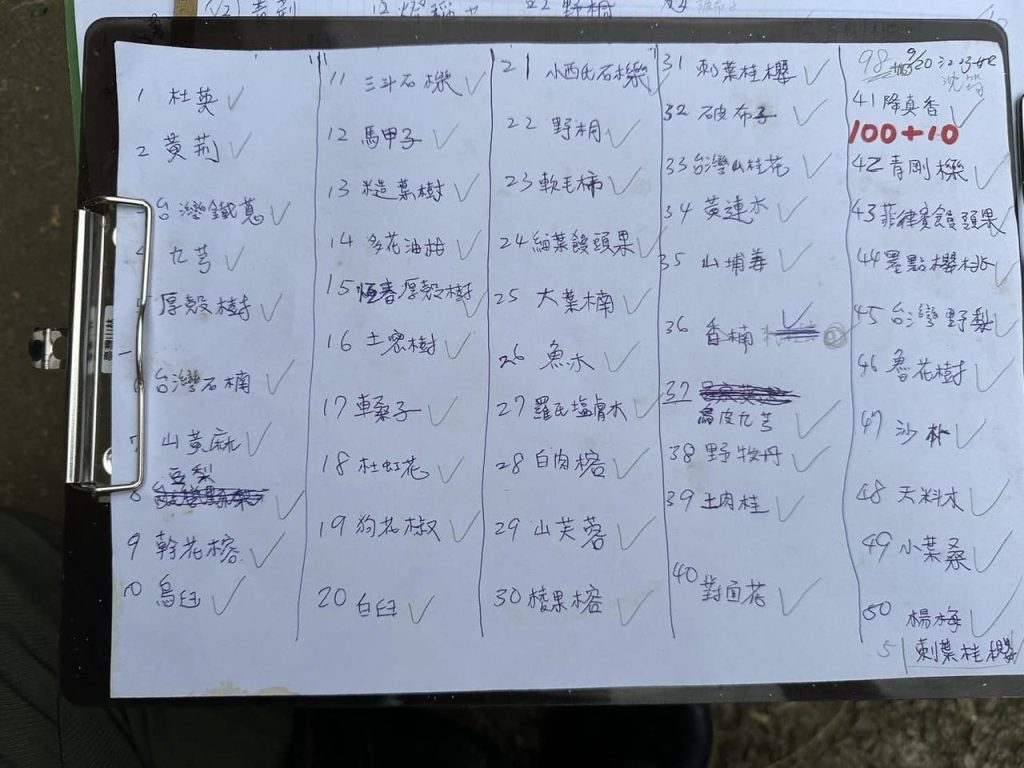 1 杜英
2 黃荊
台灣鐵莧
4 九芎
5 厚殼樹
6 台灣石楠
7 山黃麻
豆梨
8
9 幹花榕
10 烏臼
11 三斗石櫟
12 馬甲子
13 糙葉樹
14 多花油柑
15 恆春厚殼樹
16 土密樹
17 車桑子
18 杜虹花
19 狗花椒
20 白臼
21 小西氏石櫟
22 野桐
23 軟毛柿
24 細葉饅頭果
25 大葉楠
26 魚木
27 羅氏塩膚木
28 白肉榕
29 山芙蓉
30 稜果榕
31 刺葉桂櫻
32 破布子
33 台灣山桂花
34 黃連木
35 山埔姜
36 香楠
37
烏皮九芎
38 野牡丹
39 土肉桂
40 對面花
98 9/20
41 降真香
100+10
42 青剛櫟
43 菲律賓饅頭果
44 墨點櫻桃
45 台灣野梨
46 魯花樹
47 沙朴
48 天料木
49 小葉桑
50 楊梅
51 刺葉桂櫻